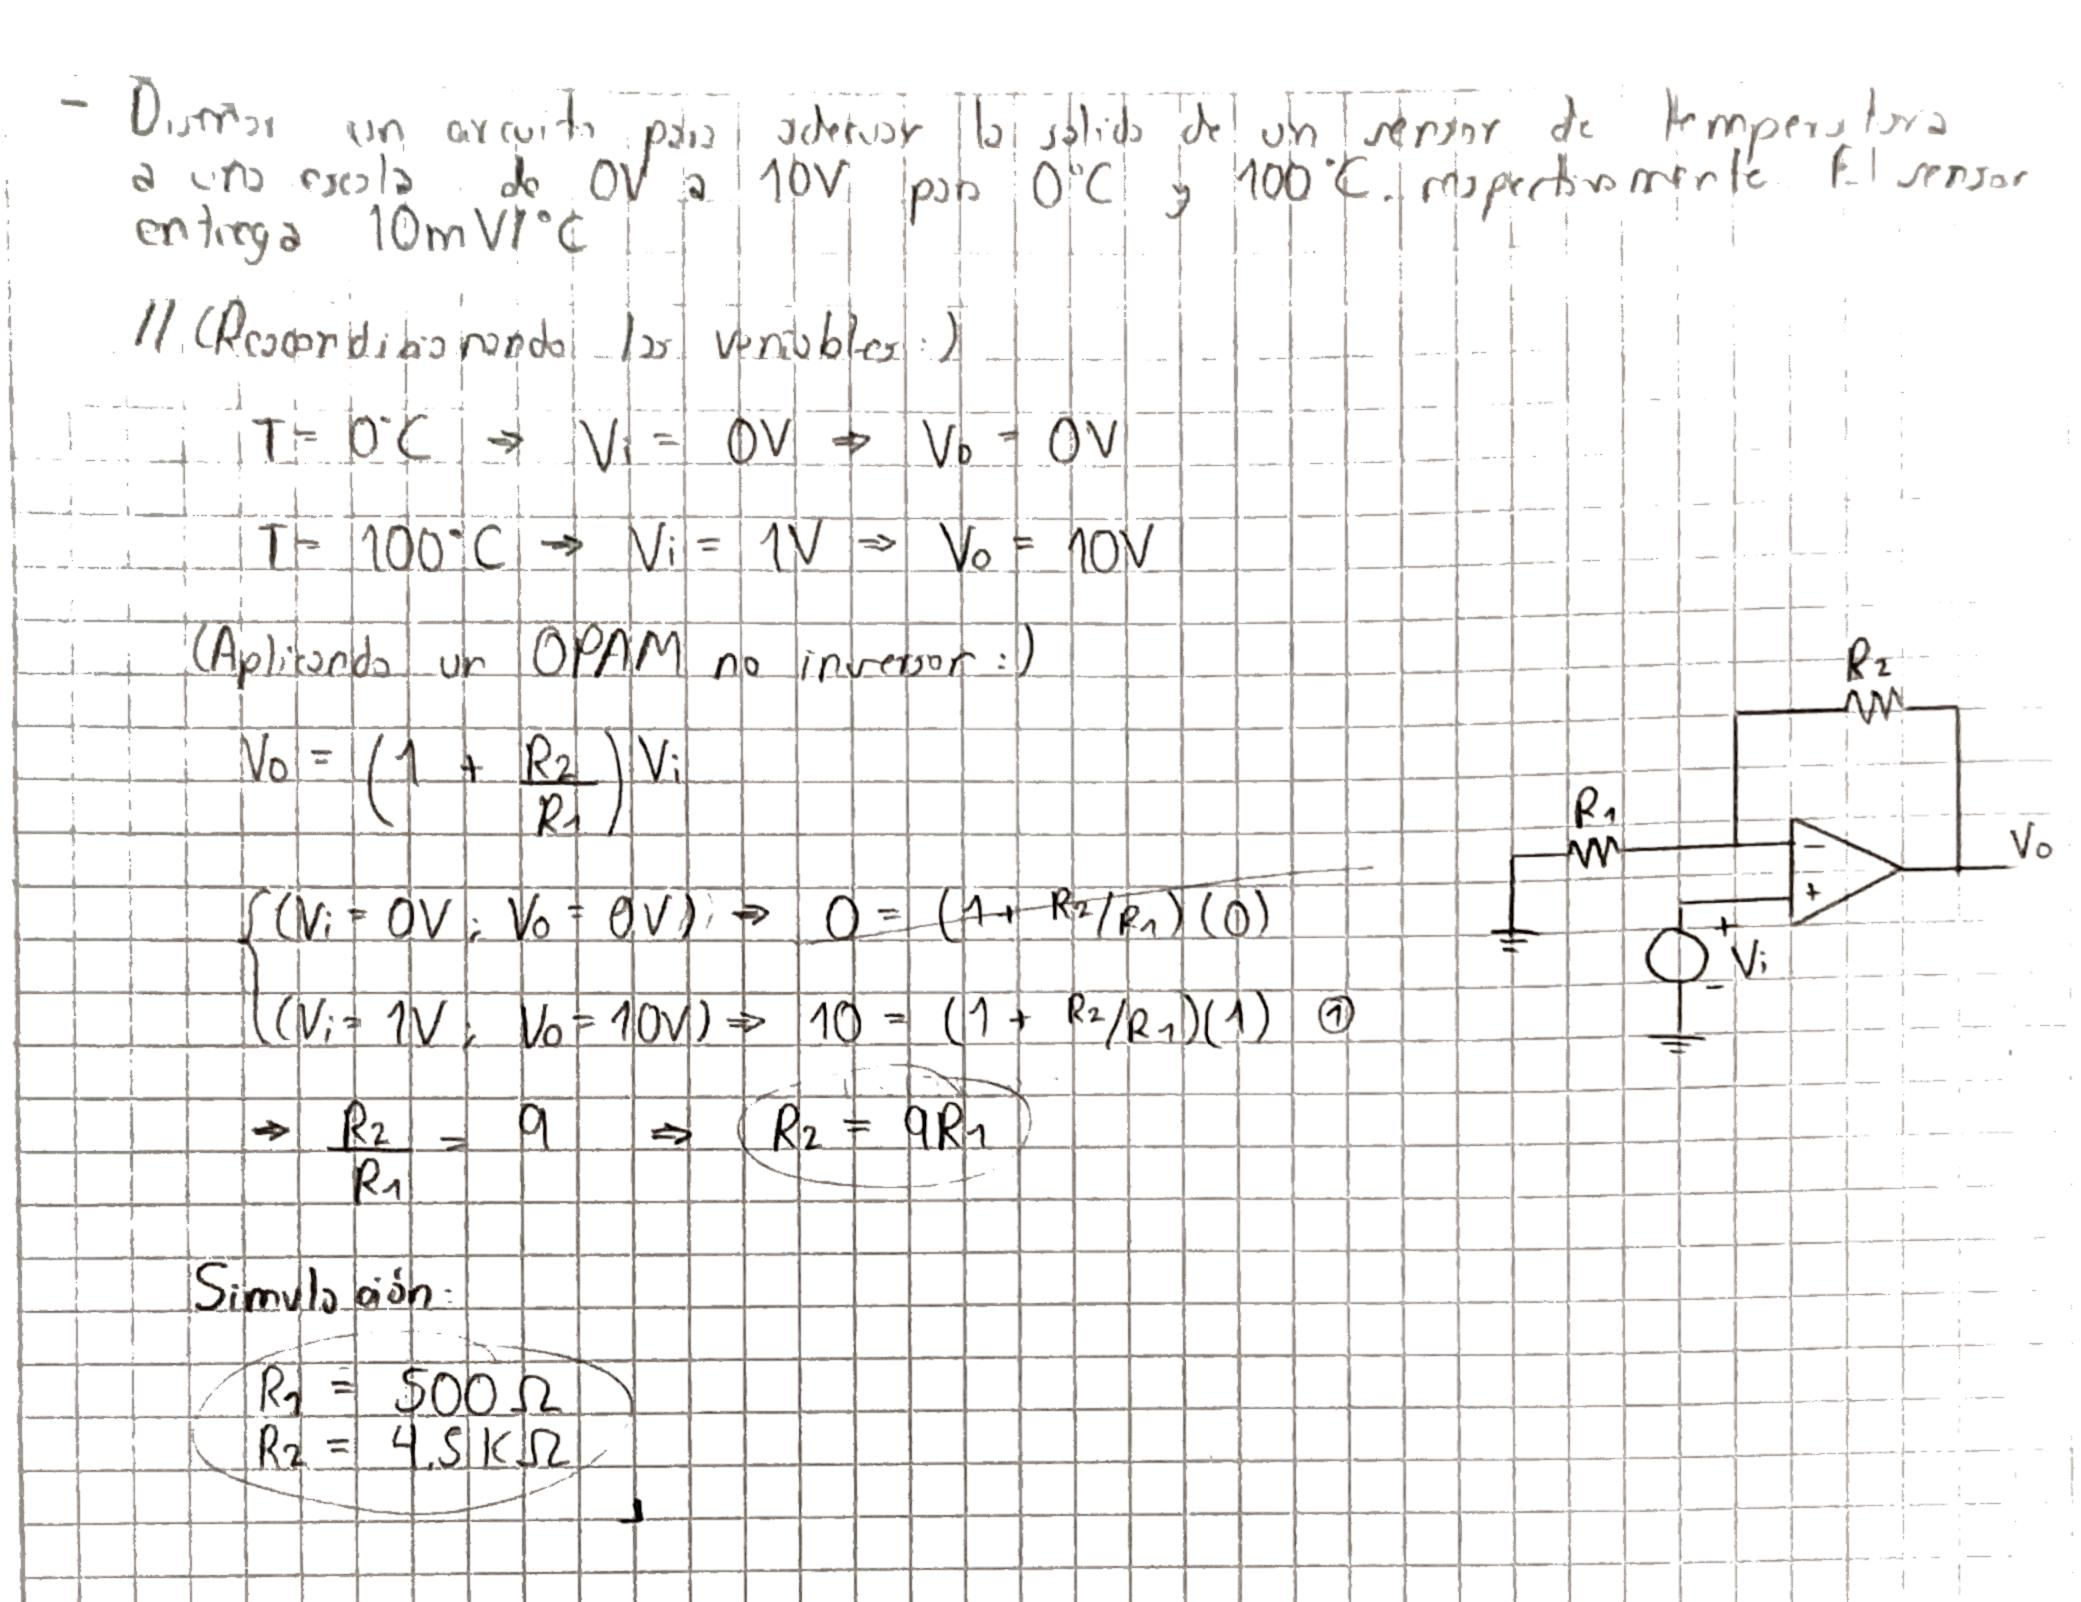 - Diseñar un circuito para adecuar la salida de un sensor de temperatura
a una escala de 0V a 10V para 0°C y 100°C. respectivamente El sensor
entrega 10mV/°C
// (Reacondicionando las variables:)
T= 0°C → Vi = 0V ⇒ Vo = 0V
T= 100°C → Vi = 1V ⇒ Vo = 10V
(Aplicando un OPAM no inversor:)
Vo = (1 + R2/R1) Vi
{(Vi = 0V ; Vo = 0V) ⇒ 0 = (1+ R2/R1)(0)
(Vi = 1V ; Vo = 10V) ⇒ 10 = (1 + R2/R1)(1) ①
⇒ R2/R1 = 9 ⇒ R2 = 9R1
R2
R1
-
+
Vo
+
Vi
-
Simulación:
R1 = 500 Ω
R2 = 4.5 KΩ